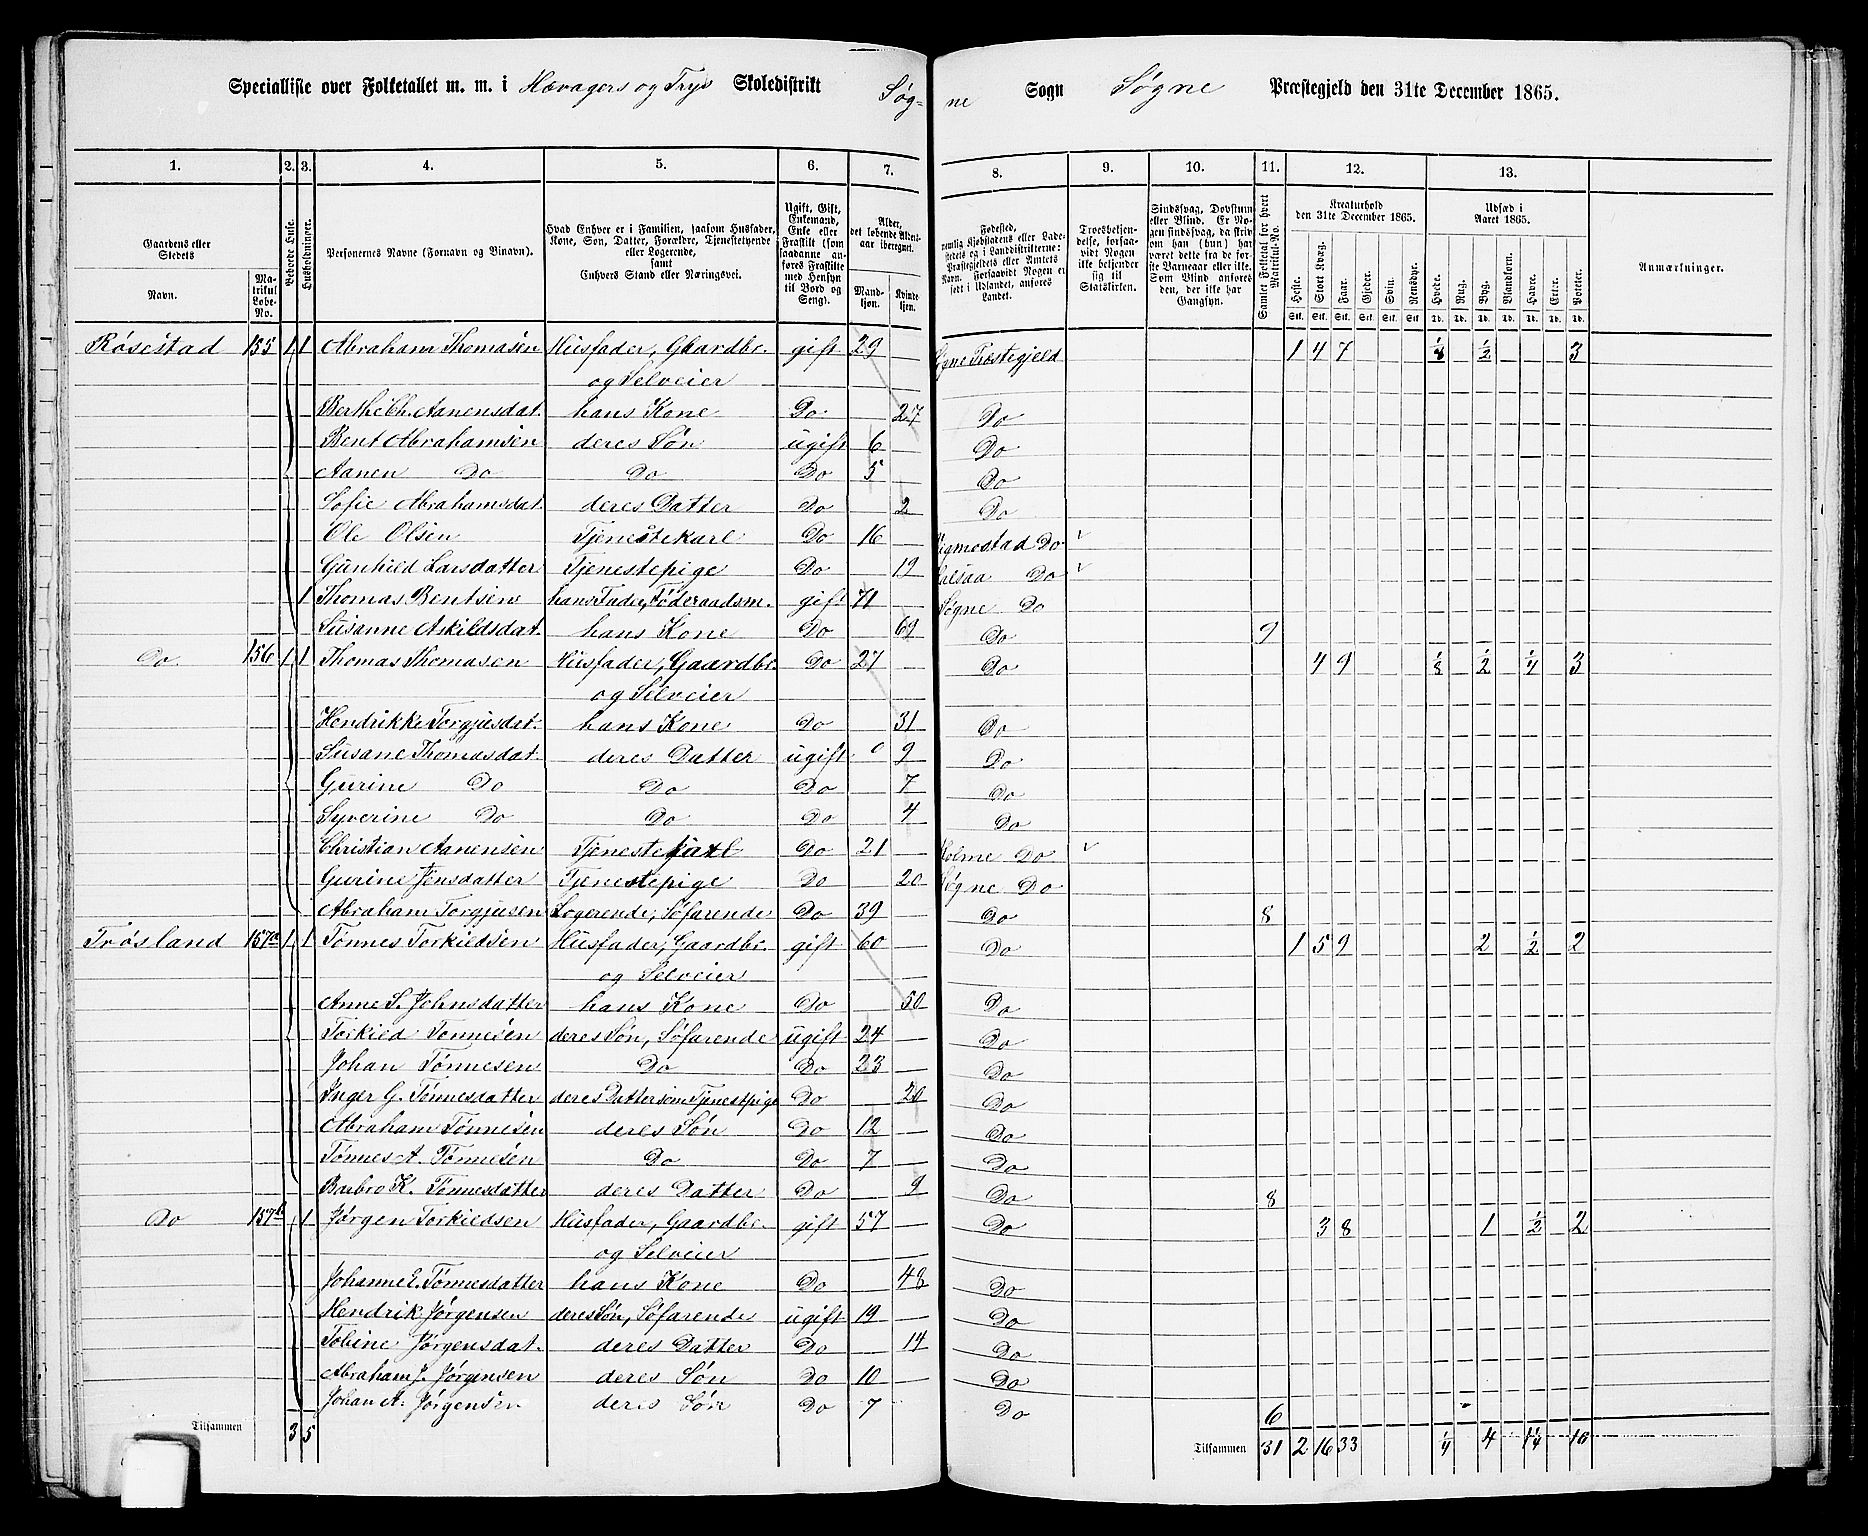 Specialliste over Folketallet m. m. i Hævagers og Trys Skoledistrikt Søgne Sogn Søgne Præstegjeld den 31te December 1865.
1. 2. 3. 4. 5. 6. 7. 8. 9. 10. 11. 12. 13.
Gaardens eller Stedets Navn. Matrikul Løbe-No. Beboede Huse. Husholdninger. Personernes Navne (Fornavn og Binavn). Hvad Enhver er i Familien, saasom Husfader, Kone, Søn, Datter, Forældre, Tjenestetyende eller Logerende, samt Enhvers Stand eller Næringsvei. Ugift, Gift, Enkemand, Enke eller Fraskilt (som saadanne anføres Fraskilte med Hensyn til Bord og Seng). Alder, det løbende Alders-aar iberegnet. Mandkjøn. Kvindekjøn.
Fødested, Troesbekjendelse, forsaavidt Nogen ikke bekjender sig til Statskirken. Sindssvag, Døvstum eller Blind. Samlet Folketal for hvert Matrikul-No. Kreaturhold den 31te December 1865. Heste. Stort Kvæg. Faar. Gjeder. Svin. Rensdyr. Udsæd i Aaret 1865. Hvede. Rug. Byg. Blandkorn. Havre. Erter. Poteter. Anmærkninger.
Røsestad 155 1 1 Abraham Thomasen Husfader, Gaardbr. gift 29 Søgne Præstegjeld 1 4 7 1/8 1/2 3
og Selveier
Berthe Ch. Aanensdat. hans Kone Do 27 Do
Bent Abrahamsen deres Søn ugift 6 Do
Aanen Do Do Do 5 Do
Sofie Abrahamsdat. deres Datter Do 2 Do
Ole Olsen Tjenestekarl Do 16 Do
Gunhild Larsdatter Tjenestepige Do 19 Do
1 Thomas Bentsen hans Fader, Føderaadsm. gift 71 Søgne Do
Susanne Askildsdat. hans Kone Do 69 Do 9
Do. 156 1 1 Thomas Thomasen Husfader, Gaardbr. Do 27 Do 4 9 1/8 1/2 1/4 3
og Selveier
Hendrikke Torgjusdat. hans Kone Do 31 Do
Susane Thomasdat. deres Datter ugift 9 Do
Gurine Do Do Do 7 Do
Syverine Do Do Do 4 Do
Christian Aanensen Tjenestekarl Do 21 Holme Do
Gurine Jensdatter Tjenestepige Do 20 Søgne Do
Abraham Torgjusen Logerende, Søfarende Do 39 Do 8
Trøsland 157a 1 1 Tønnes Torkildsen Husfader, Gaardbr. gift 60 Do 1 5 9 2 1/2 2
og Selveier
Anne S. Johnsdatter hans Kone Do 50 Do
Torkild Tønnesen deres Søn, Søfarende ugift 24 Do
Johan Tønnesen Do Do 23 Do
Inger G. Tønnesdatter deres Datter som Tjenestpige Do 20 Do
Abraham Tønnesen deres Søn Do 12 Do
Tønnes A. Tønnesen Do Do 7 Do
Barbro K. Tønnesdatter deres Datter Do 9 Do 8
Do 157b 1 Jørgen Torkildsen Husfader, Gaardbr. gift 57 Do 3 8 1 1/2 2
og Selveier
Johanne E. Tønnesdatter hans Kone Do 48 Do
Hendrik Jørgensen deres Søn, Søfarende ugift 19 Do
Tobine Jørgensdat. deres Datter Do 14 Do
Abraham J. Jørgensen deres Søn Do 10 Do
Johan A. Jørgensen deres Søn Do 7 Do 6
Tilsammen 3 5 Tilsammen 31 2 16 33 1/4 4 1 1/4 10